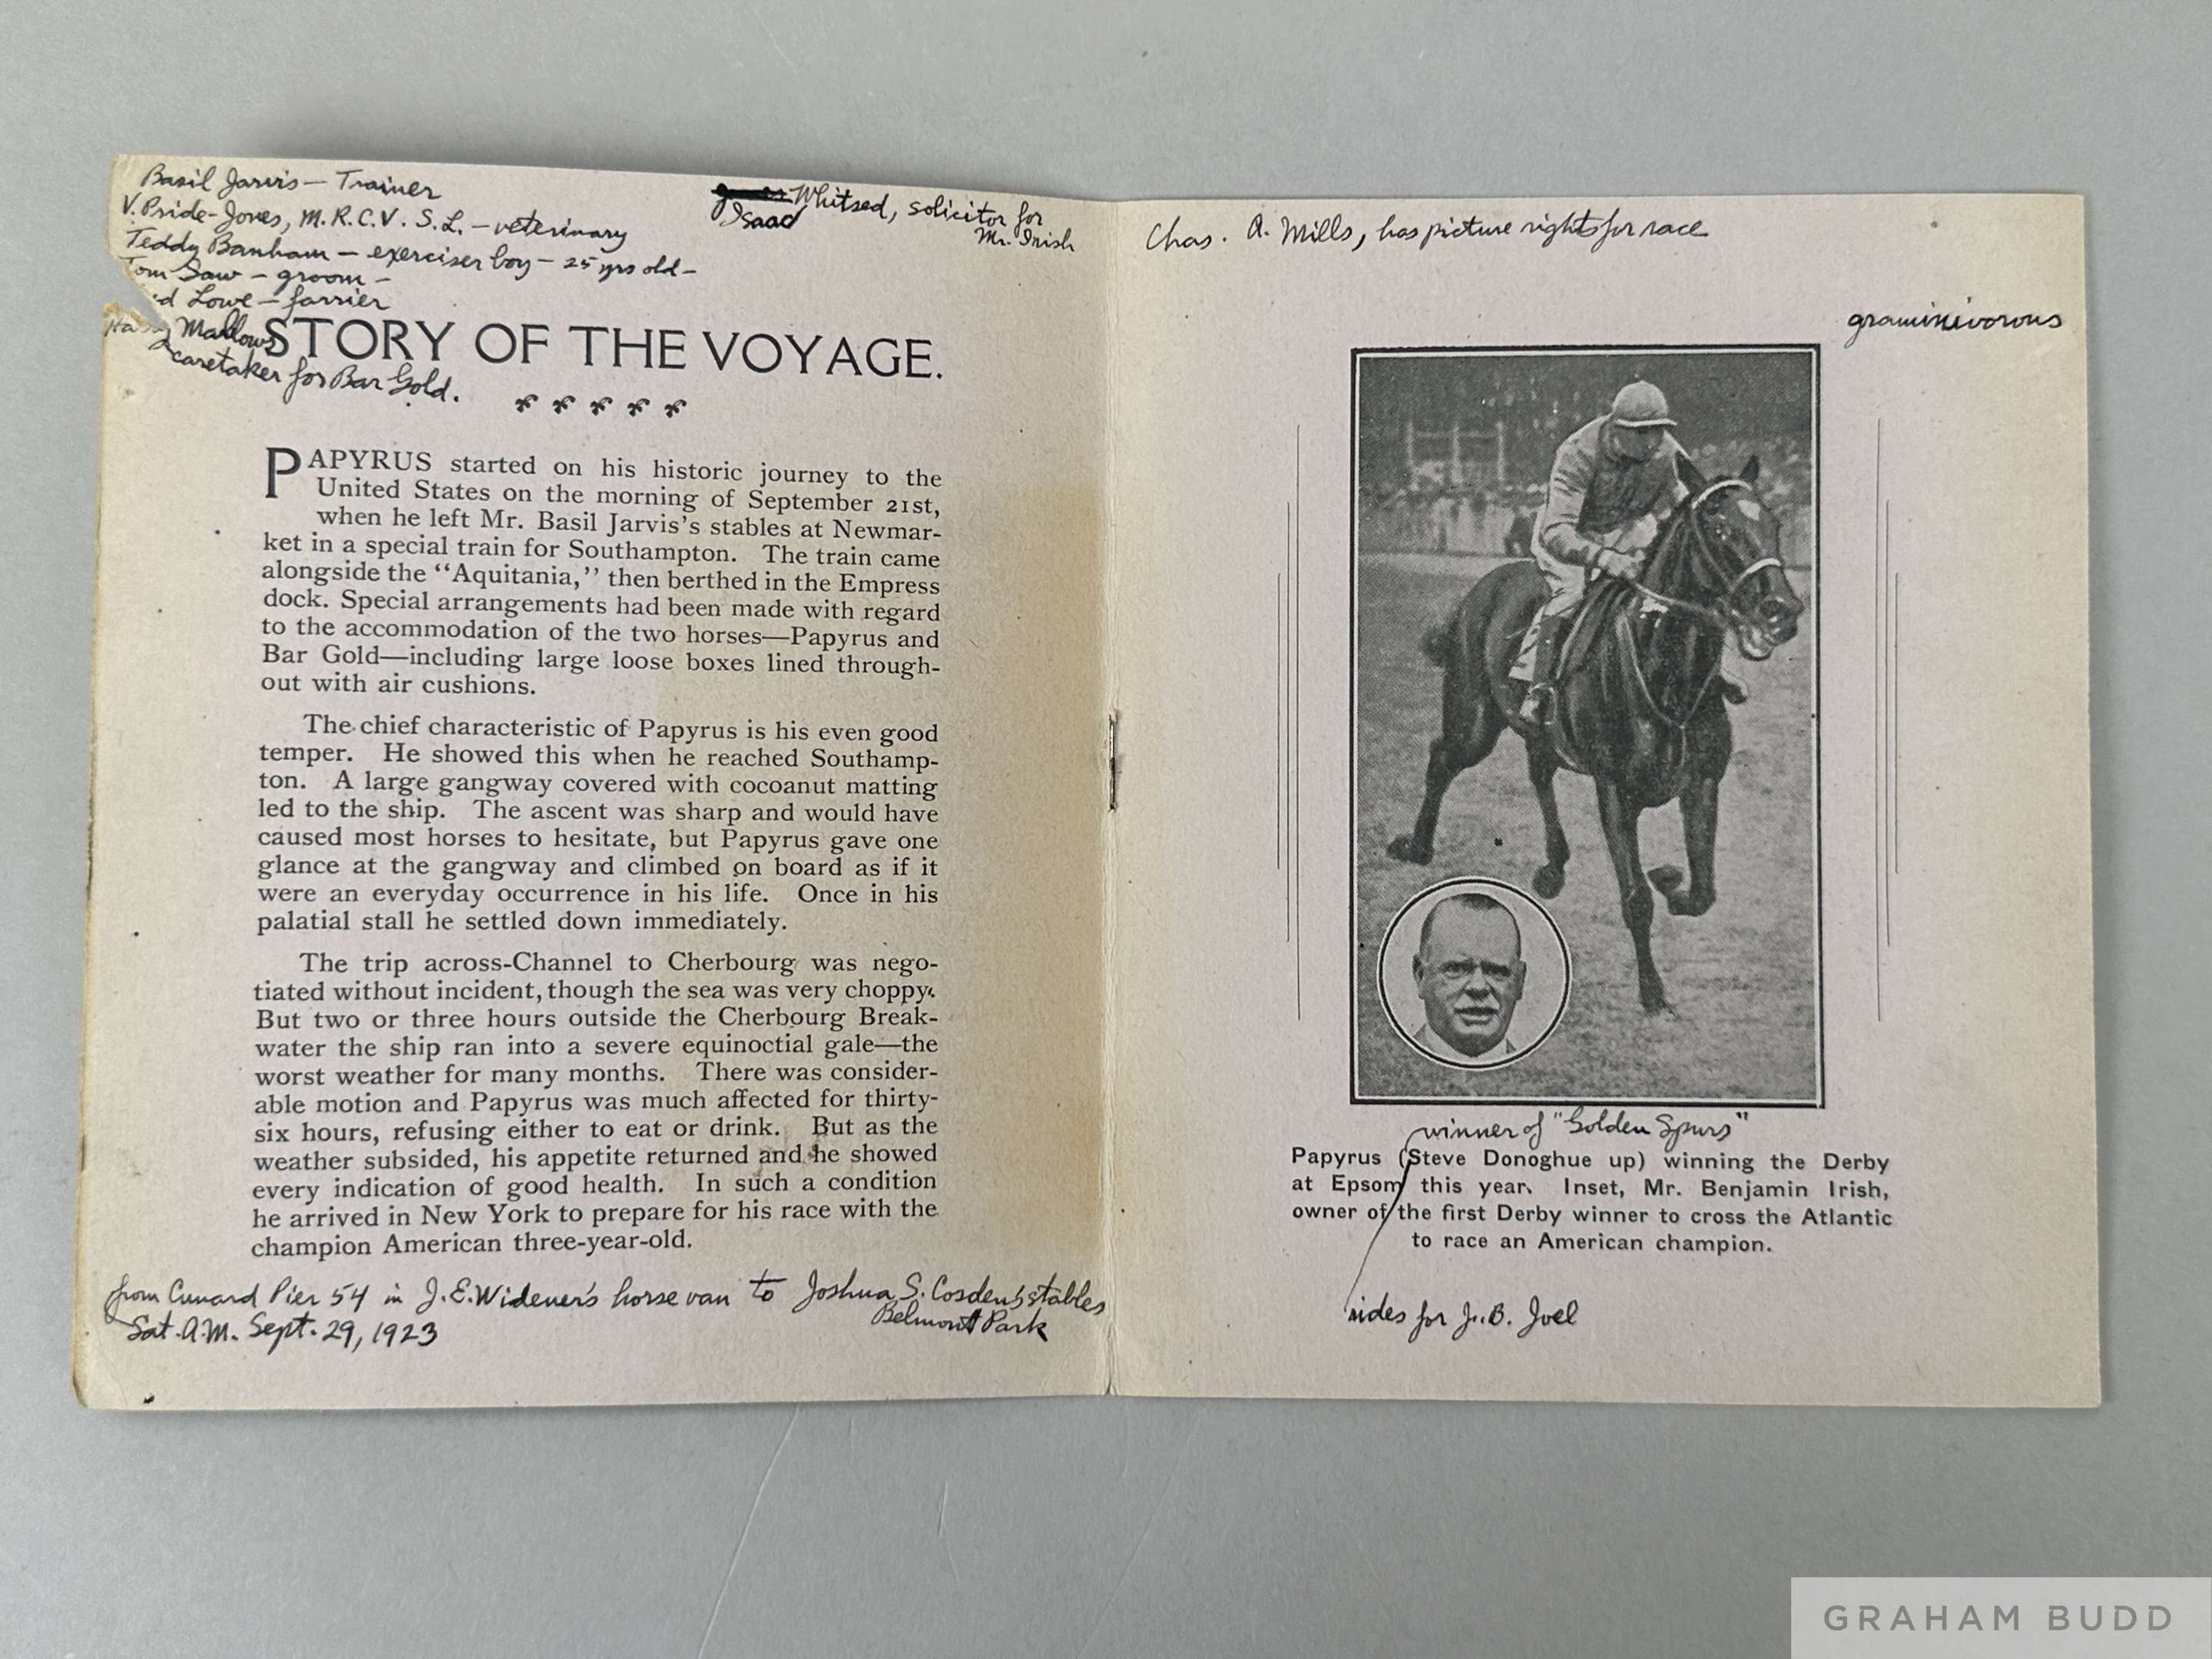 Basil Jarvis — Trainer
V. Pride-Jones, M.R.C.V.S.L. — veterinary
Teddy Banham — exerciser boy — 25 yrs old —
Tom Saw — groom —
Lowe — farrier
Marlow
caretaker for Bar Gold.
Whitsed, solicitor for
Isaac
Mr. Irish
STORY OF THE VOYAGE.
PAPYRUS started on his historic journey to the
United States on the morning of September 21st,
when he left Mr. Basil Jarvis's stables at Newmar-
ket in a special train for Southampton. The train came
alongside the "Aquitania," then berthed in the Empress
dock. Special arrangements had been made with regard
to the accommodation of the two horses—Papyrus and
Bar Gold—including large loose boxes lined through-
out with air cushions.
The chief characteristic of Papyrus is his even good
temper. He showed this when he reached Southamp-
ton. A large gangway covered with cocoanut matting
led to the ship. The ascent was sharp and would have
caused most horses to hesitate, but Papyrus gave one
glance at the gangway and climbed on board as if it
were an everyday occurrence in his life. Once in his
palatial stall he settled down immediately.
The trip across-Channel to Cherbourg was nego-
tiated without incident, though the sea was very choppy.
But two or three hours outside the Cherbourg Break-
water the ship ran into a severe equinoctial gale—the
worst weather for many months. There was consider-
able motion and Papyrus was much affected for thirty-
six hours, refusing either to eat or drink. But as the
weather subsided, his appetite returned and he showed
every indication of good health. In such a condition
he arrived in New York to prepare for his race with the
champion American three-year-old.
from Cunard Pier 54 in J.E. Widener's horse van to Joshua S. Cosden's stables
Belmont Park
Sat. A.M. Sept. 29, 1923
Chas. A. Mills, has picture rights for race
graminivorous
winner of "Golden Spurs"
Papyrus (Steve Donoghue up) winning the Derby
at Epsom this year. Inset, Mr. Benjamin Irish,
owner of the first Derby winner to cross the Atlantic
to race an American champion.
rides for J. B. Joel
GRAHAM BUDD